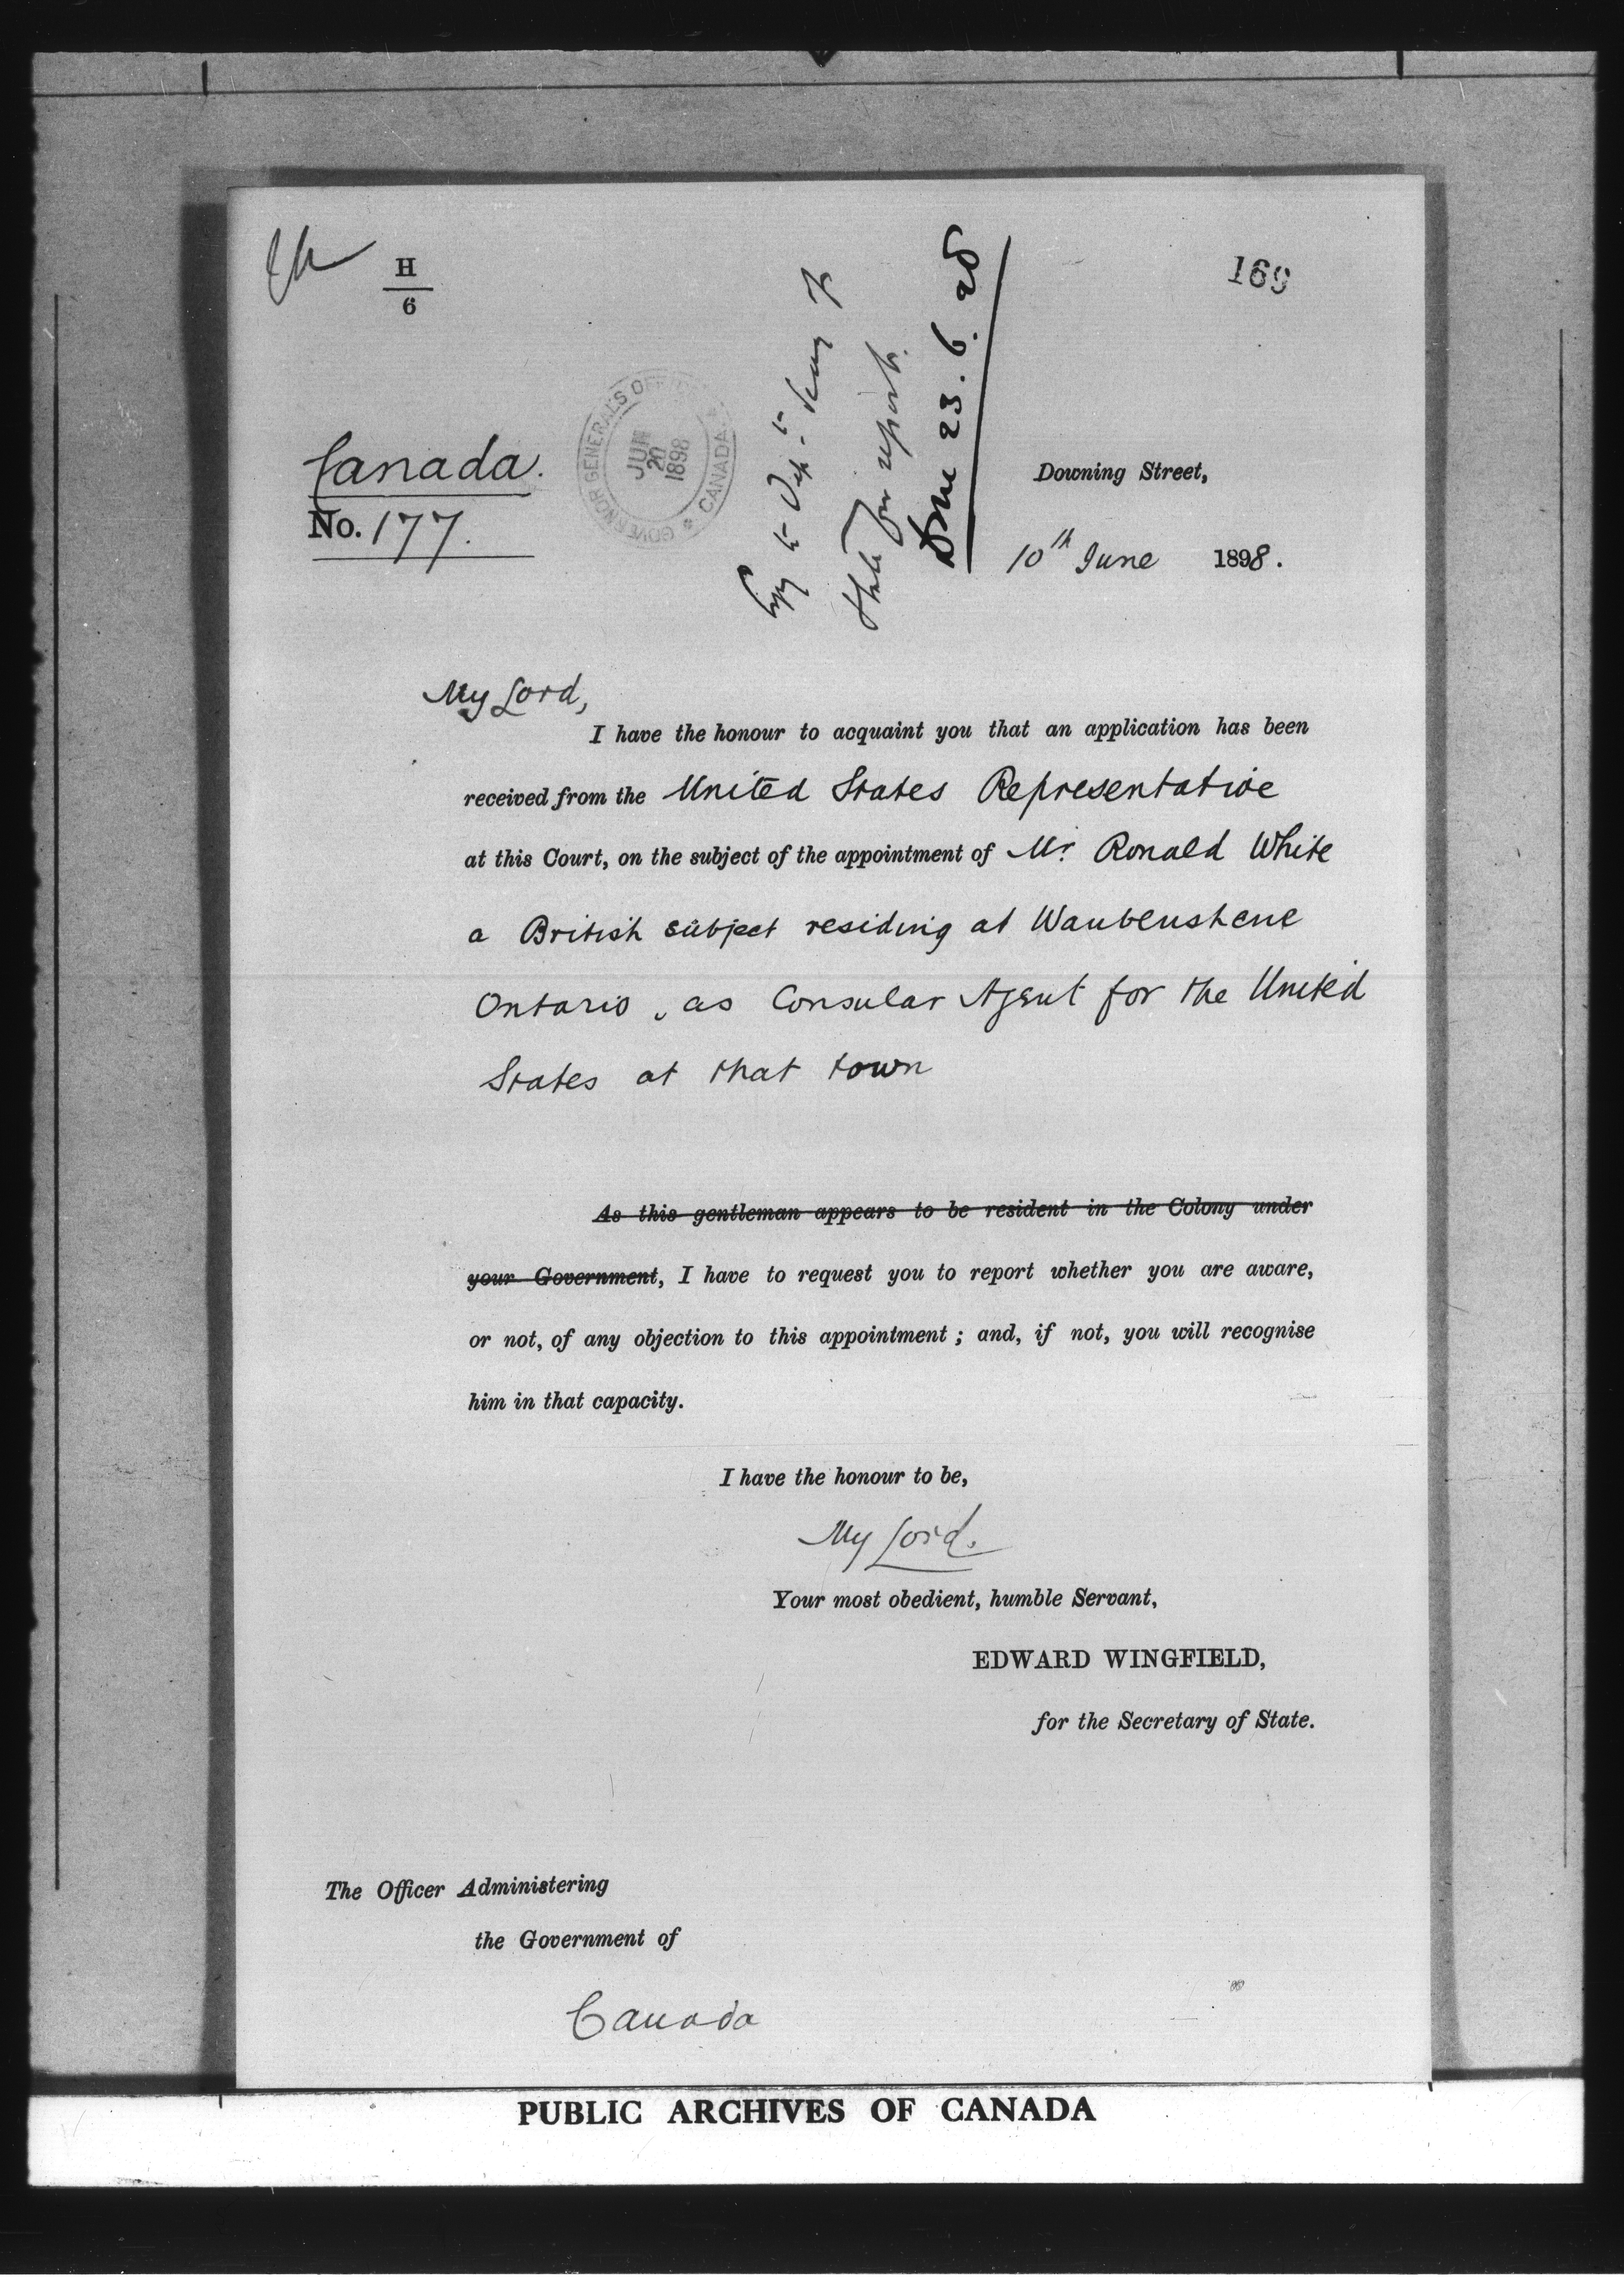 H
6
169
GOVERNOR GENERAL'S OFFICE
CANADA
JUN
20
1898
Copy to
State for report.
Done 23.6.98
Canada.
No. 177.
Downing Street,
10th June 1898.
My Lord,
I have the honour to acquaint you that an application has been
received from the United States Representative
at this Court, on the subject of the appointment of Mr. Ronald White
a British subject residing at Waubenshene
Ontario, as Consular Agent for the United
States at that town
As this gentleman appears to be resident in the Colony under
your Government, I have to request you to report whether you are aware,
or not, of any objection to this appointment; and, if not, you will recognise
him in that capacity.
I have the honour to be,
My Lord.
Your most obedient, humble Servant,
EDWARD WINGFIELD,
for the Secretary of State.
The Officer Administering
the Government of
Canada
PUBLIC ARCHIVES OF CANADA